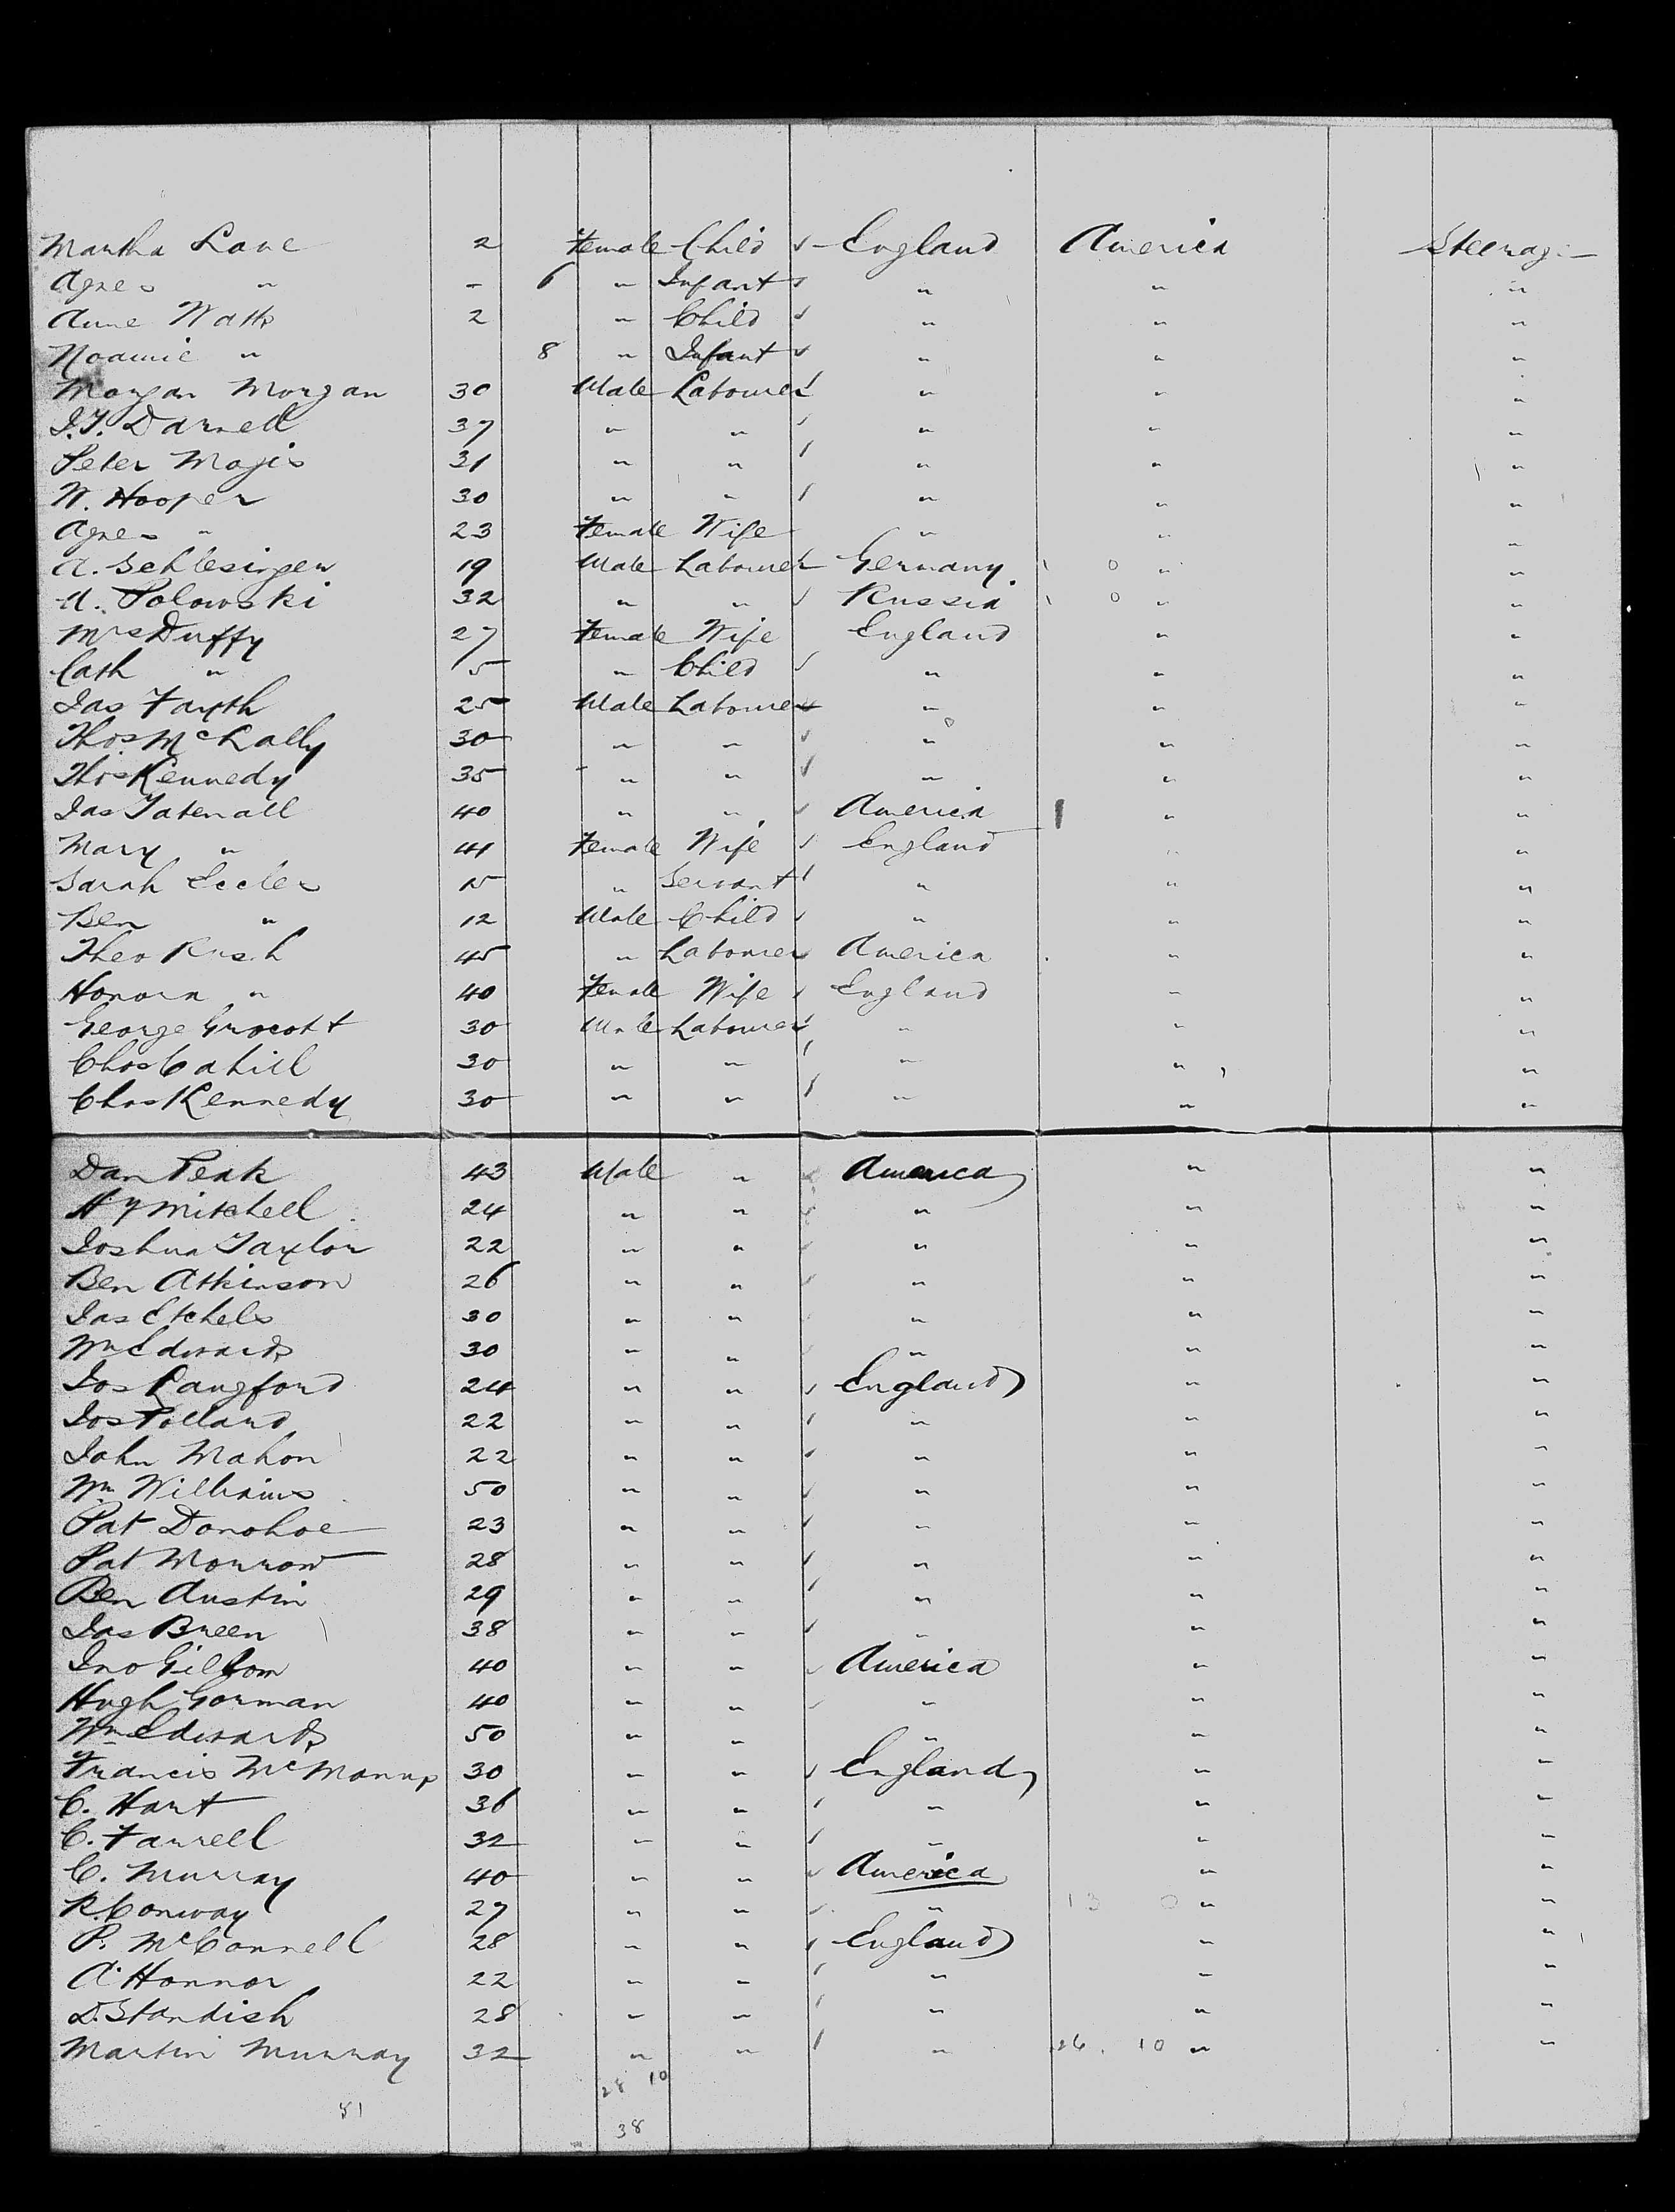 Martha Lane 2 Female Child ✓ England America Steerage
Agnes " - 6 " Infant ✓ " " "
Anne Watts 2 " Child ✓ " " "
Noamie " 8 " Infant ✓ " " "
Morgan Morgan 30 Male Labourer ✓ " " "
J.T. Darnell 37 " " ✓ " " "
Peter Magis 31 " " ✓ " " "
W. Hooper 30 " " ✓ " " "
Agnes " 23 Female Wife " " "
A. Schlesinger 19 Male Labourer Germany 1 0 " "
A. Polowski 32 " " ✓ Russia 1 0 " "
Mrs Duffy 27 Female Wife England " "
Cath " 5 " Child ✓ " " "
Jas Fayth 25 Male Labourer ✓ " " "
Thos McLally 30 " " ✓ " " "
Thos Kennedy 35 " " ✓ " " "
Jas Tatenall 40 " " ✓ America 1 " "
Mary " 41 Female Wife ✓ England " "
Sarah Eccles 15 " Servant ✓ " " "
Ben " 12 Male Child ✓ " " "
Theo Rush 45 " Labourer ✓ America " "
Honora " 40 Female Wife ✓ England " "
George Grocott 30 Male Labourer ✓ " " "
Chas Cahill 30 " " ✓ " " "
Chas Kennedy 30 " " ✓ " " "
Dan Peak 43 Male " ✓ America " "
Hy Mitchell 24 " " ✓ " " "
Joshua Taylor 22 " " ✓ " " "
Ben Atkinson 26 " " ✓ " " "
Jas Etchels 30 " " " " "
Wm Edwards 30 " " ✓ " " "
Jos Langford 24 " " ✓ England " "
Jos Pollard 22 " " ✓ " " "
John Mahon 22 " " ✓ " " "
Wm Williams 50 " " ✓ " " "
Pat Donohoe 23 " " ✓ " " "
Pat Morrow 28 " " ✓ " " "
Ben Austin 29 " " ✓ " " "
Jas Breen 38 " " ✓ " " "
Jno Gillom 40 " " ✓ America " "
Hugh Gorman 40 " " ✓ " " "
Wm Edwards 50 " " " " "
Francis McManus 30 " " ✓ England " "
C. Hart 36 " " ✓ " " "
C. Farrell 32 " " ✓ " " "
C. Murray 40 " " ✓ America " "
R. Conway 27 " " ✓ " 13 0 " "
P. McConnell 28 " " ✓ England " "
A. Honnor 22 " " ✓ " " "
D. Standish 28 " " ✓ " " "
Martin Murray 32 " " ✓ " 26. 10 " "
28 10
51
38